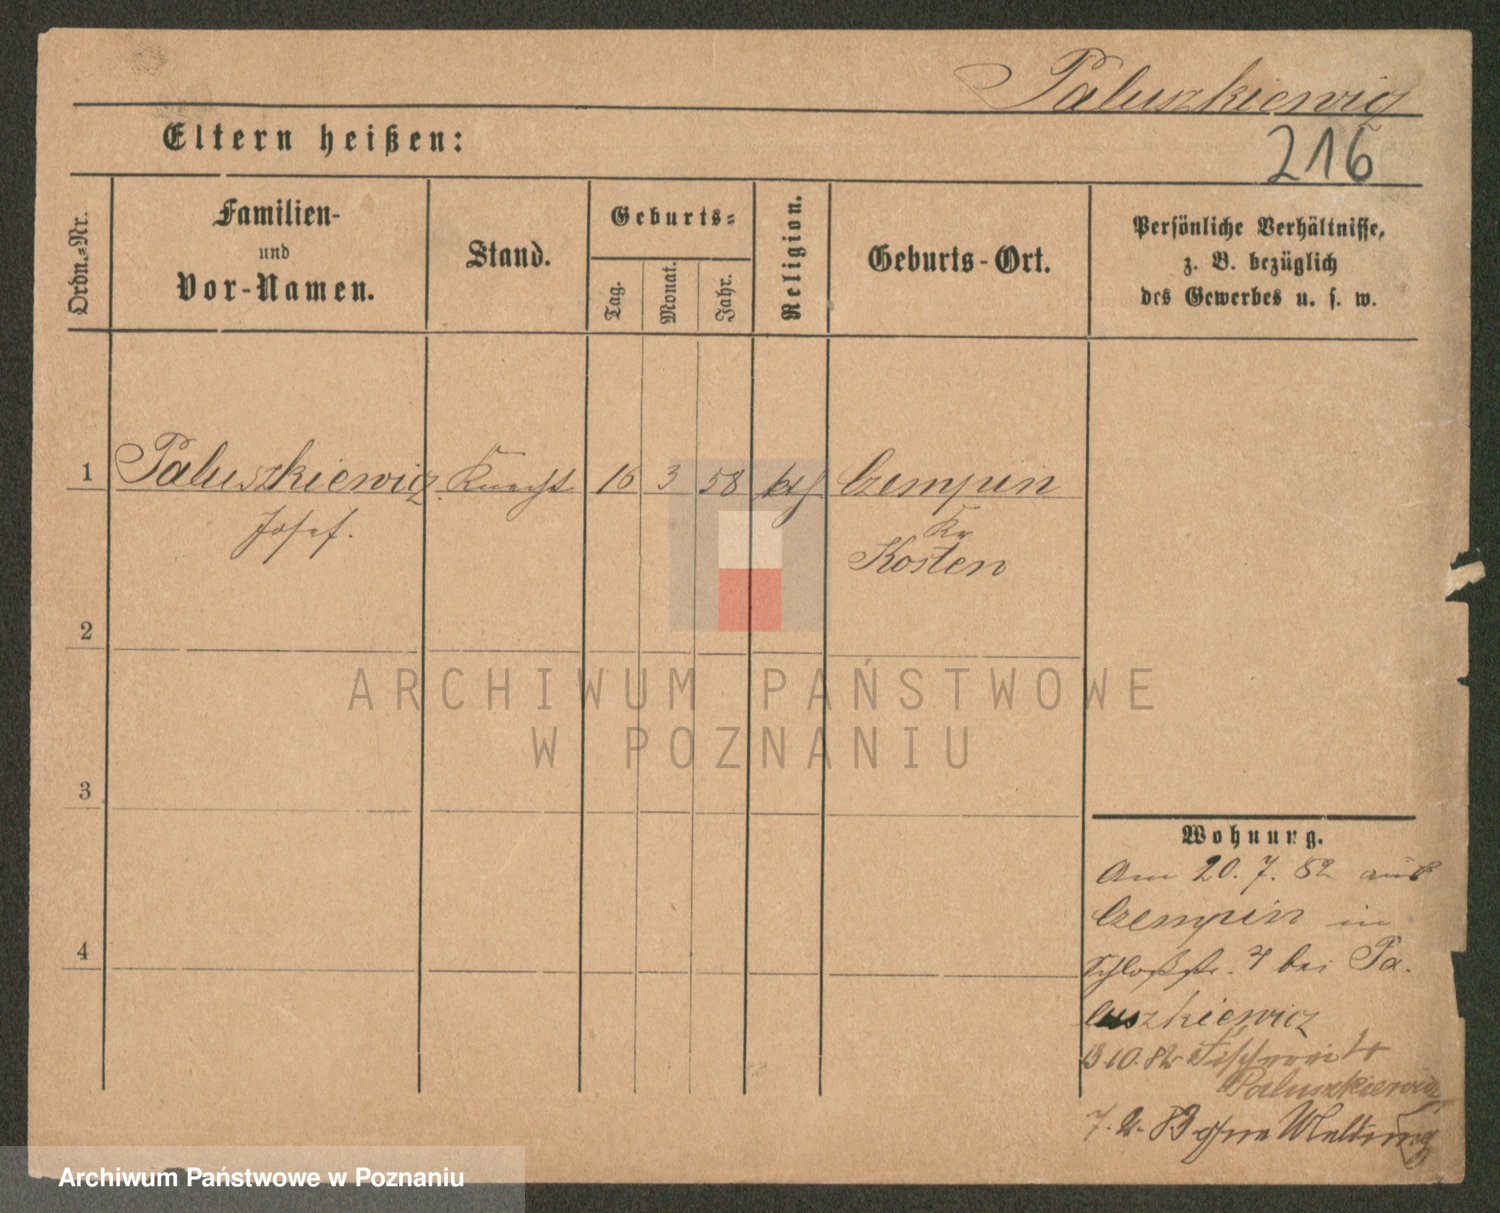 Paluszkiewicz
Eltern heißen:
216
Ordn.-Nr.
Familien-
und
Vor-Namen.
Stand.
Geburts-
Tag.
Monat.
Jahr.
Religion.
Geburts-Ort.
Persönliche Verhältnisse,
z. B. bezüglich
des Gewerbes u. s. w.
1 Paluszkiewicz Knecht 16 3 58 kth Czempin
Josef. Kr
Kosten
2
3
4
Wohnung.
Am 20. 7. 82 aus
Czempin in
Schloßstr. 7 bei Pa-
luszkiewicz
13.10.82 Fischerei 4
Paluszkiewicz
7. 2. 83 ohne Meldung
ARCHIWUM PAŃSTWOWE
W POZNANIU
Archiwum Państwowe w Poznaniu